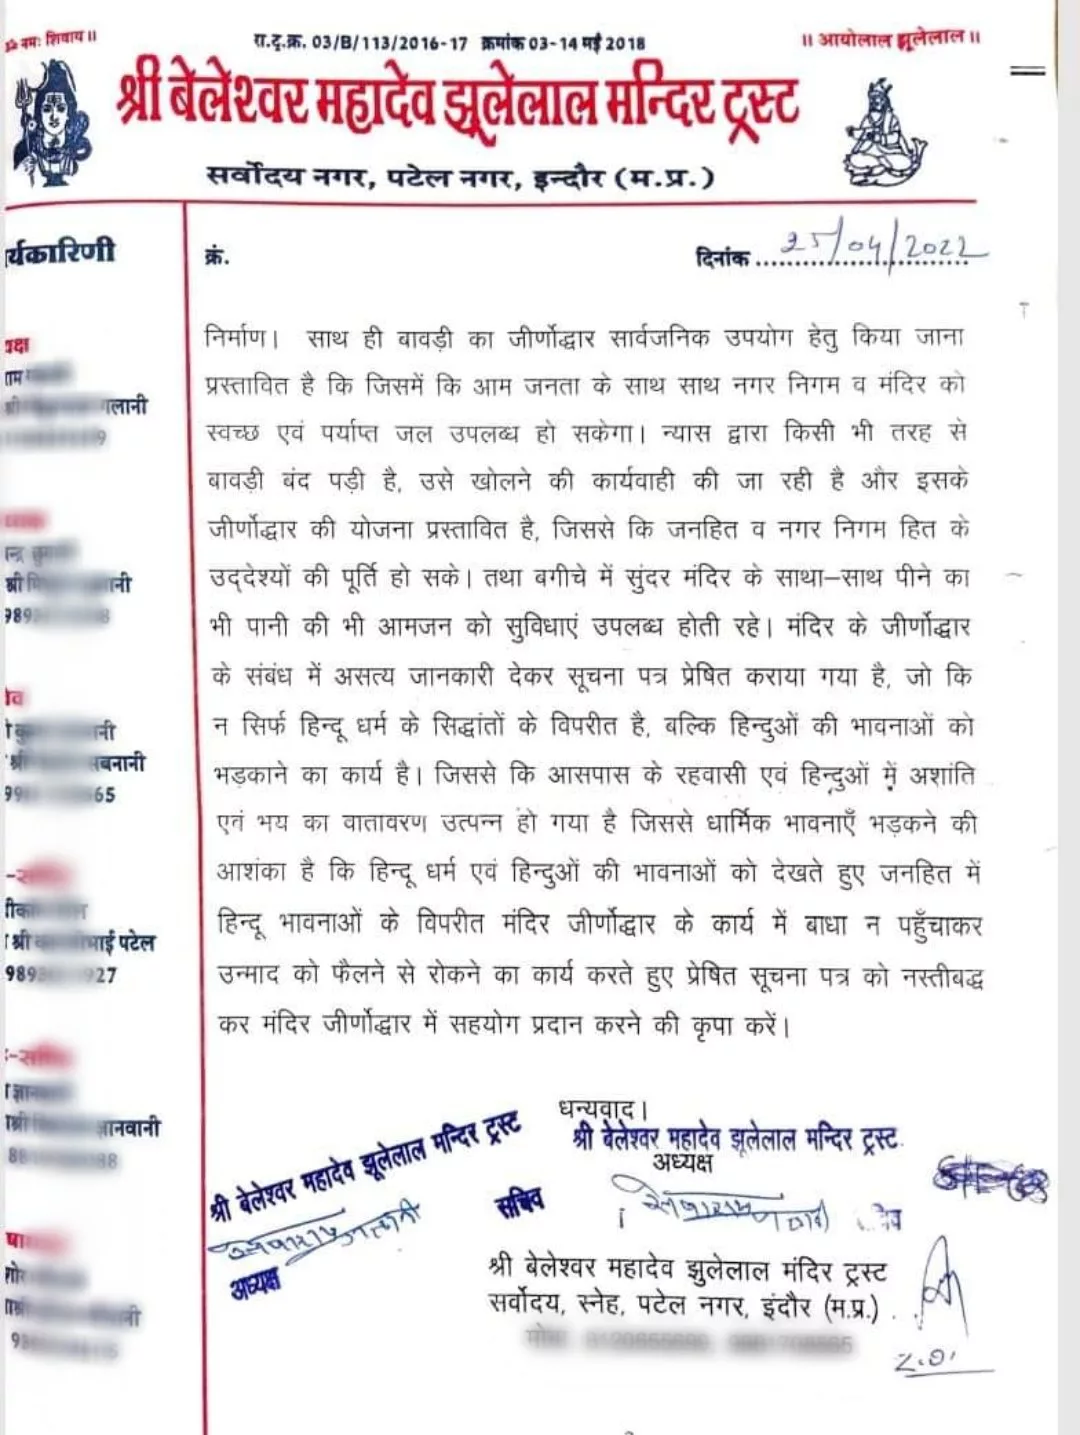 ॐ नमः शिवाय॥
रा.दृ.क्र. 03/B/113/2016-17 क्रमांक 03-14 मई 2018
॥ आयोलाल झूलेलाल॥
श्री बेलेश्वर महादेव झूलेलाल मन्दिर ट्रस्ट
सर्वोदय नगर, पटेल नगर, इन्दौर (म.प्र.)
र्यकारिणी
क्रं.
दिनांक 25/04/2022
निर्माण। साथ ही बावड़ी का जीर्णोद्धार सार्वजनिक उपयोग हेतु किया जाना
प्रस्तावित है कि जिसमें कि आम जनता के साथ साथ नगर निगम व मंदिर को
स्वच्छ एवं पर्याप्त जल उपलब्ध हो सकेगा। न्यास द्वारा किसी भी तरह से
बावड़ी बंद पड़ी है, उसे खोलने की कार्यवाही की जा रही है और इसके
जीर्णोद्धार की योजना प्रस्तावित है, जिससे कि जनहित व नगर निगम हित के
उद्देश्यों की पूर्ति हो सके। तथा बगीचे में सुंदर मंदिर के साथा–साथ पीने का
भी पानी की भी आमजन को सुविधाएं उपलब्ध होती रहे। मंदिर के जीर्णोद्धार
के संबंध में असत्य जानकारी देकर सूचना पत्र प्रेषित कराया गया है, जो कि
न सिर्फ हिन्दू धर्म के सिद्धांतों के विपरीत है, बल्कि हिन्दुओं की भावनाओं को
भड़काने का कार्य है। जिससे कि आसपास के रहवासी एवं हिन्दुओं में अशांति
एवं भय का वातावरण उत्पन्न हो गया है जिससे धार्मिक भावनाएँ भड़कने की
आशंका है कि हिन्दू धर्म एवं हिन्दुओं की भावनाओं को देखते हुए जनहित में
हिन्दू भावनाओं के विपरीत मंदिर जीर्णोद्धार के कार्य में बाधा न पहुँचाकर
उन्माद को फैलने से रोकने का कार्य करते हुए प्रेषित सूचना पत्र को नस्तीबद्ध
कर मंदिर जीर्णोद्धार में सहयोग प्रदान करने की कृपा करें।
यक्ष
गलानी
9
श्री
ानी
989
8
नी
श्री
सबनानी
99
65
श्री
भाई पटेल
989
927
ज्ञानवानी
88
88
धन्यवाद।
श्री बेलेश्वर महादेव झूलेलाल मन्दिर ट्रस्ट
अध्यक्ष
श्री बेलेश्वर महादेव झूलेलाल मन्दिर ट्रस्ट
अध्यक्ष
सचिव
श्री बेलेश्वर महादेव झुलेलाल मंदिर ट्रस्ट
सर्वोदय, स्नेह, पटेल नगर, इंदौर (म.प्र.)
Z.O.